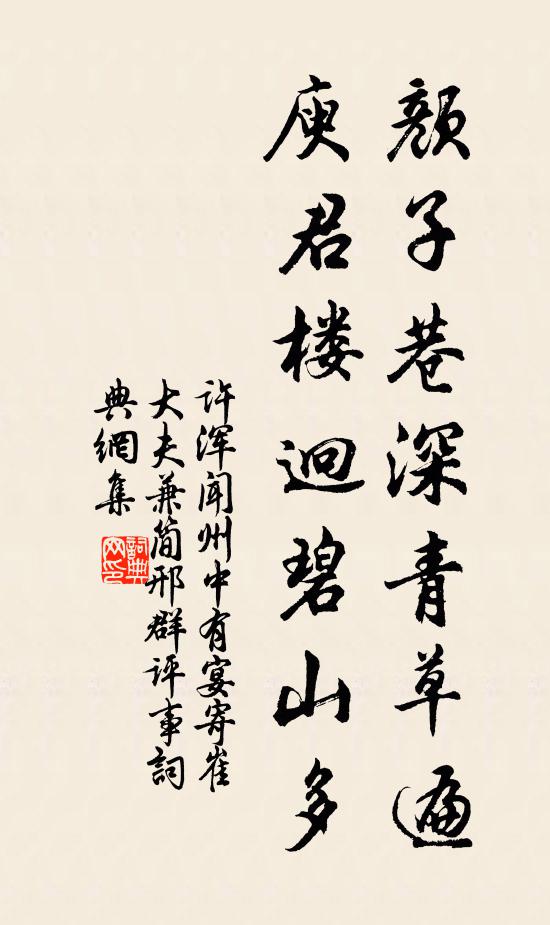 颜子巷深青草遍
庾君楼迥碧山多
许浑闻州中有宴寄崔
大夫兼简邢群评事词
典網集
詞典
网印